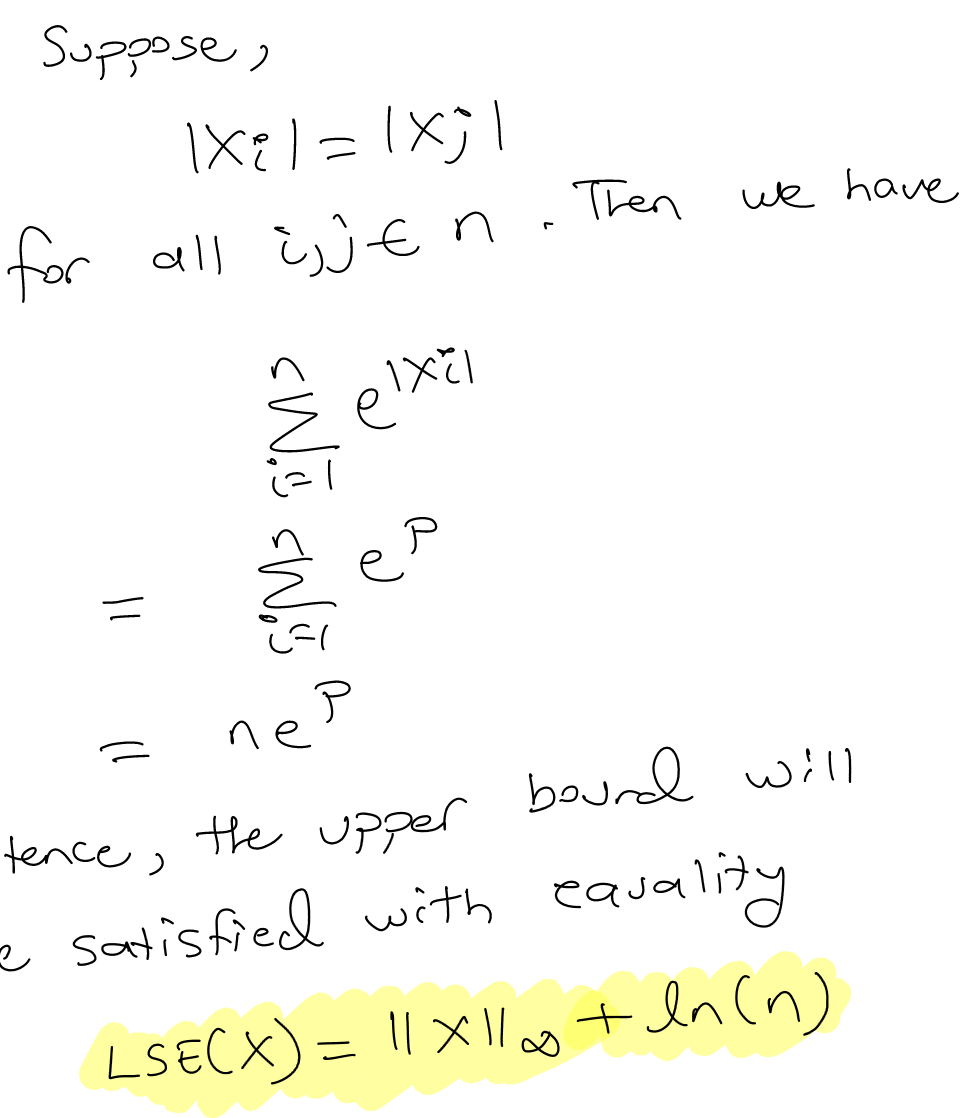 Suppose,
|Xi| = |Xj|
for all i,j ∈ n. Then we have
n
∑ e^|Xi|
i=1
n
= ∑ e^P
i=1
= ne^P
tence, the upper bound will
e satisfied with equality
LSE(X) = ||X||∞ + ln(n)